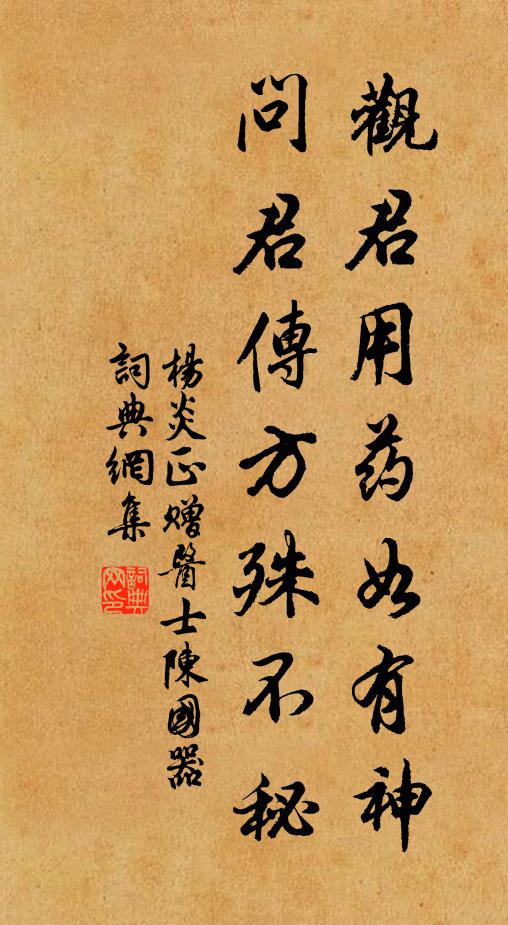 觀君用药如有神
問君傳方殊不秘
楊炎正贈醫士陳國器
詞典網集
詞典網印